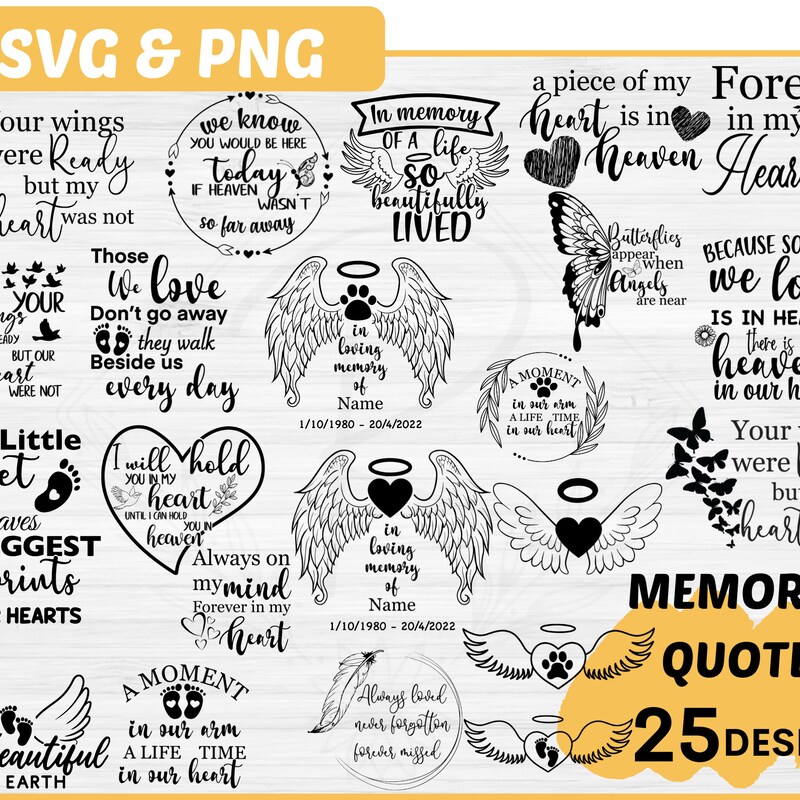 SVG & PNG
our wings
were Ready
but my
heart was not
we know
YOU WOULD BE HERE
today
IF HEAVEN
WASN'T
so far away
In memory
OF A life
so
beautifully
LIVED
a piece of my
heart is in
heaven
Fore
in my
Hear
YOUR
ngs
EADY
BUT OUR
eart
WERE NOT
Those
We love
Don't go away
they walk
Beside us
every day
in
loving
memory
of
Name
1/10/1980 - 20/4/2022
Butterflies
appear
when
Angels
are near
BECAUSE SO
we lo
IS IN HEA
there is
heave
in our h
A MOMENT
in our arm
A LIFE TIME
in our heart
Little
et
aves
IGGEST
prints
R HEARTS
I will hold
YOU IN MY
heart
UNTIL I CAN HOLD
YOU IN
heaven
Always on
my mind
Forever in my
heart
in
loving
memory
of
Name
1/10/1980 - 20/4/2022
Your
were
bu
heart
MEMOR
QUOTE
25 DESI
eautiful
EARTH
A MOMENT
in our arm
A LIFE TIME
in our heart
Always loved
never forgotten
forever missed